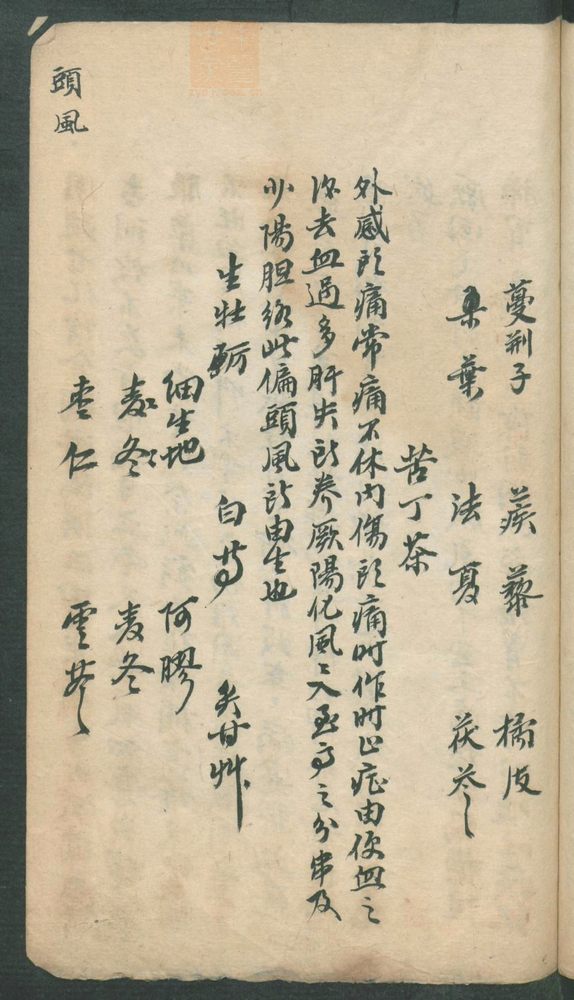 頭風
蔓荆子 蒺藜 橘皮
桑葉 法夏 茯苓
苦丁茶
外感頭痛常痛不休内傷頭痛时作时止症由便血之
後去血過多肝失所養厥陽化風々入至高之分串及
少陽胆絡此偏頭風所由生也
生牡蛎 白芍 炙甘艸
細生地 阿膠
麦冬 麦冬
枣仁 雲苓